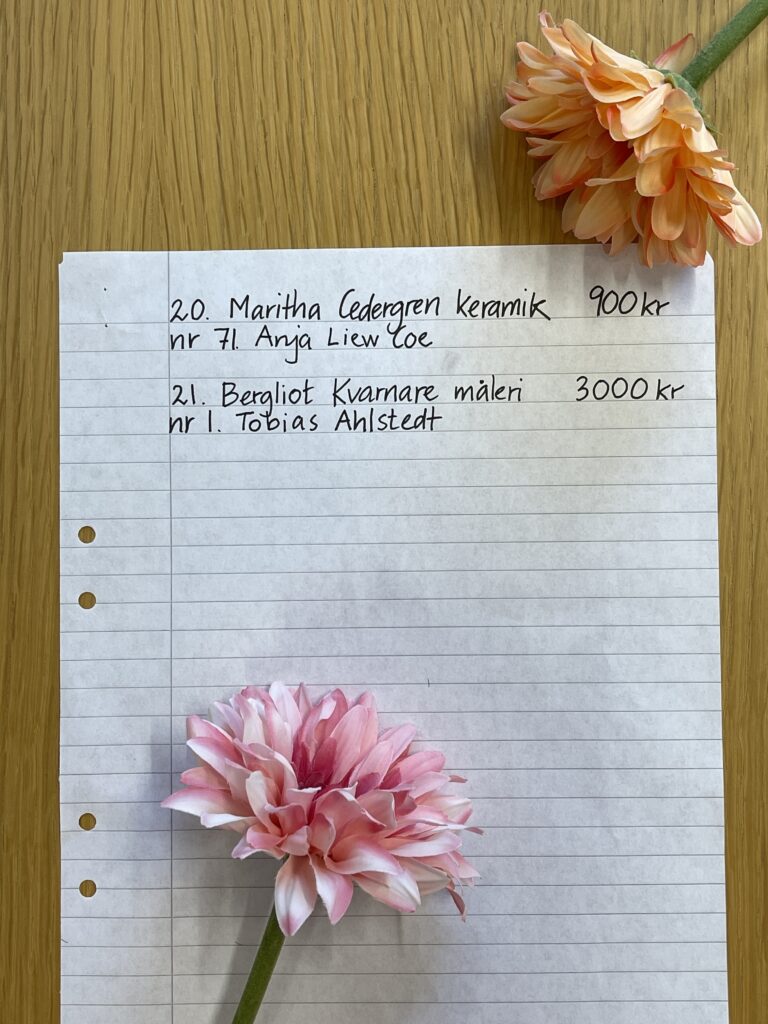 20. Maritha Cedergren keramik 900 kr
nr 71. Anja Liew Coe
21. Bergliot Kvarnare måleri 3000 kr
nr 1. Tobias Ahlstedt